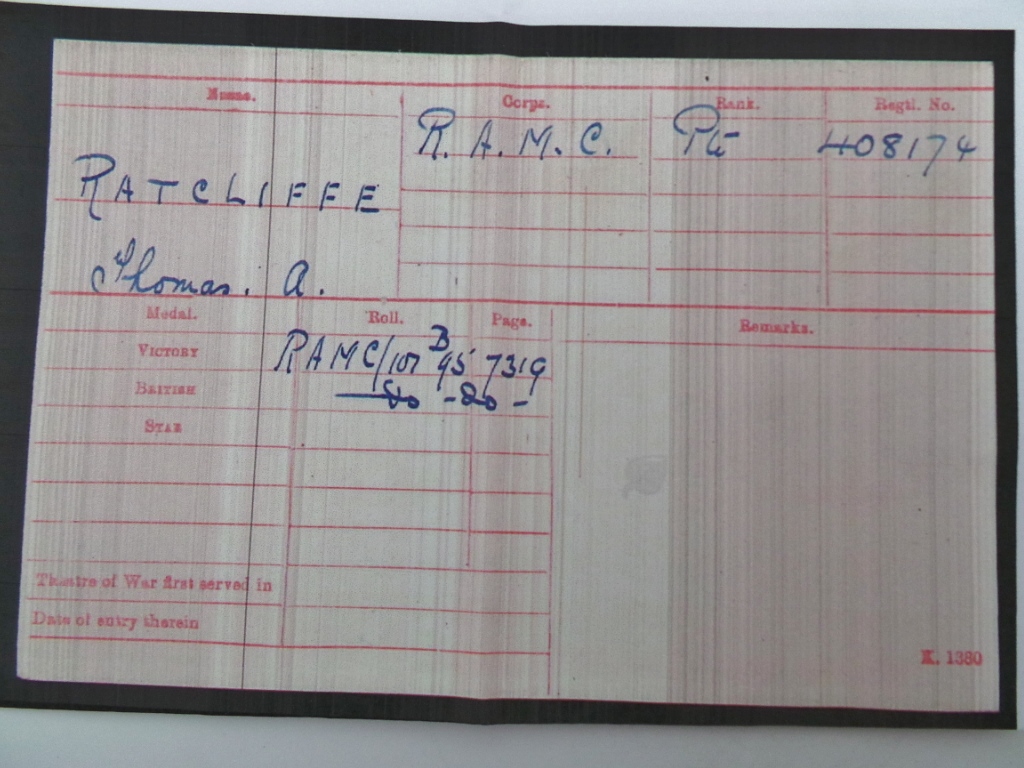 Name. Corps. Rank. Regtl. No.
R. A. M. C. Pte 408174
RATCLIFFE
Thomas. A.
Medal. Roll. Page. Remarks.
VICTORY RAMC/101 B 95 7319
BRITISH — do - do -
STAR
Theatre of War first served in
Date of entry therein
K. 1380